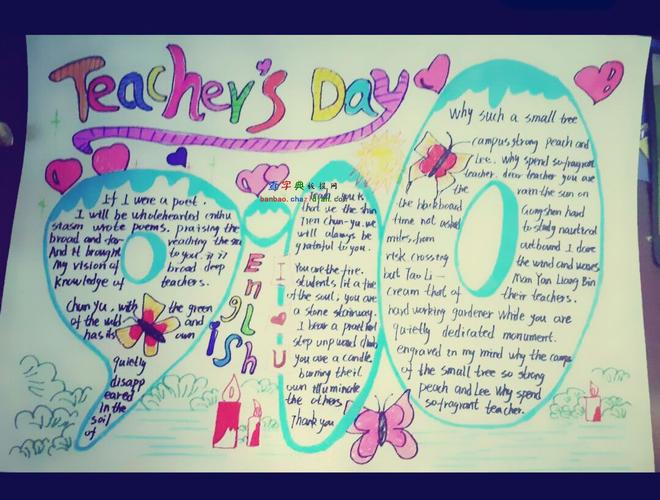 Teacher's Day
If I were a poet.
I will be wholehearted enthu
siasm wrote poems. praising the
broad and far reaching the sea
And it brought to your. it is
my vision of broad deep
knowledge of teachers.
Chun Yu, with the green
of the wild and
has its own
quietly
disapp
eared
in the
soil
of
English
I U
that we the
Jien chun-yu. we
will always be
grateful to you.
You are the fire.
students lit a fire
of the soul, you are
a stone stairway.
I bear a
step upward climb
you are a candle
burning their
own illuminate
the others
Thank you
why such a small tree
campus strong peach and
Lee. why spend so-fragrant
teacher. dear teacher you are
the rain the sun on
the blackboard Gongshen hard
time not asked to study nautical
miles, from outbound I dare
risk crossing the wind and waves
but Tao Li — Man Yan Liang Bin
cream that of their teachers.
hard working gardener while you are
quietly dedicated monument.
engraved in my mind why the camp
of the small tree so strong
peach and Lee Why spend
so-fragrant teacher.
字典板报网
banbao.chazidian.com